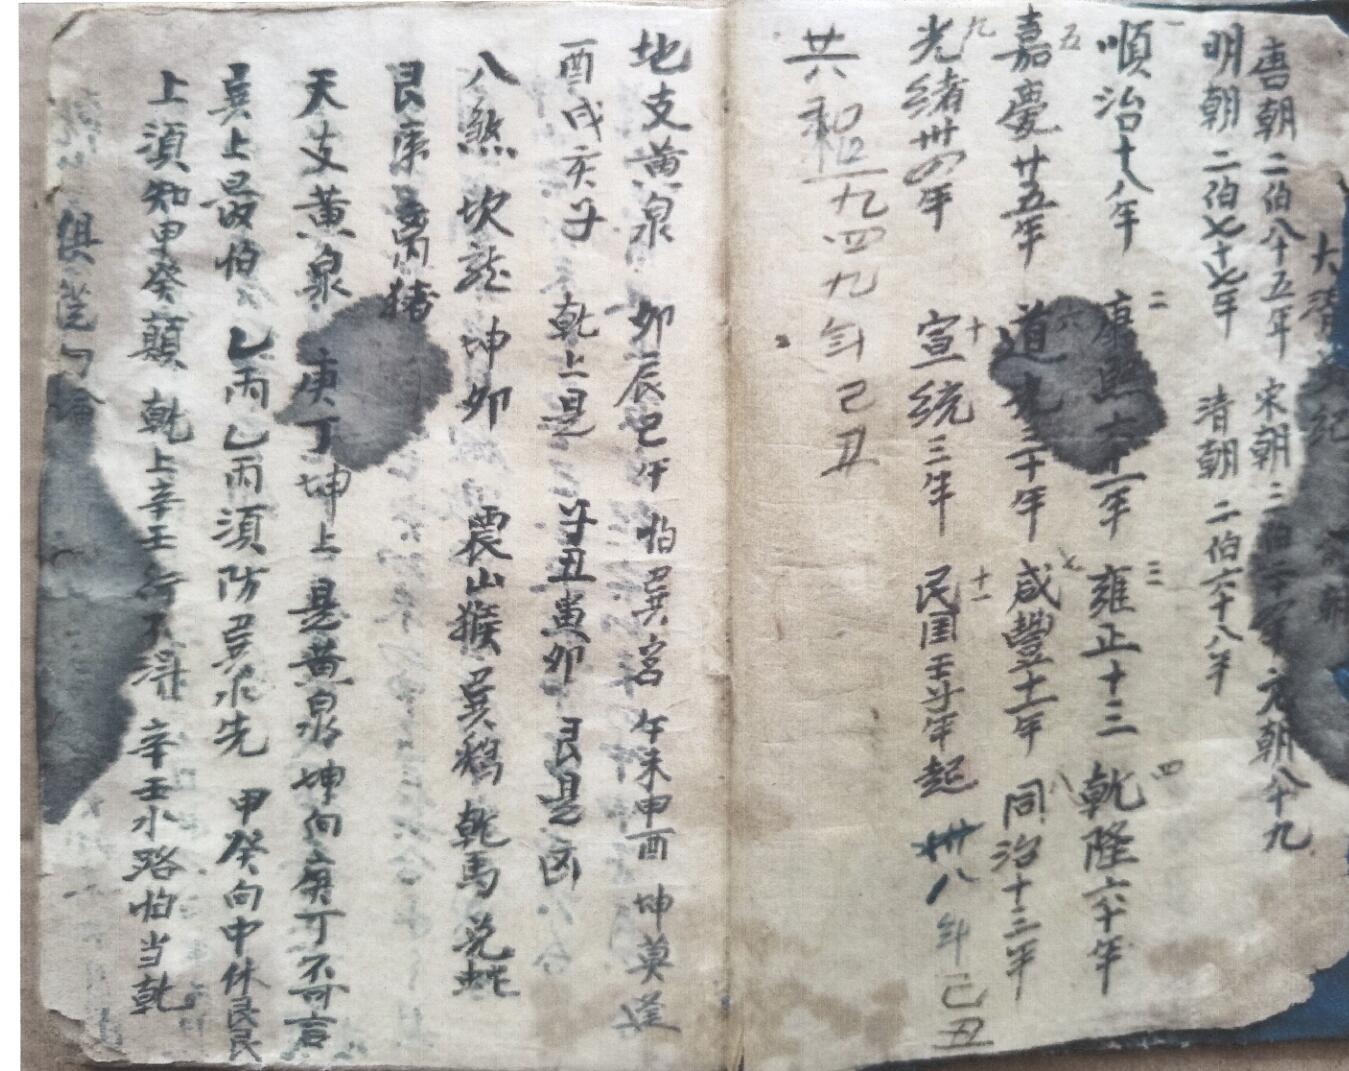 大清 紀
唐朝二伯八十五年 宋朝二伯二十年 元朝八十九
明朝二伯七十七年 清朝二伯六十八年
一 順治十八年 二 康熙六十一年 三 雍正十三 四 乾隆六十年
五 嘉慶廿五年 六 道光三十年 七 咸豐十一年 八 同治十三年
九 光緒卅四年 十 宣統三年 十一 民国壬子年起 卅八年己丑
共和一九四九年己丑
地支黄泉 卯辰巳午怕巽宮 午未申酉坤莫逢
酉戌亥子乾上是 子丑寅卯艮是凶
八煞坎龍坤卯 震山猴巽鷄乾馬兌蛇
艮虎离猪
天支黄泉 庚丁坤上是黄泉 坤向庚丁不可言
巽上忌怕乙丙 乙丙須防巽水先 甲癸向中休見艮
上須知甲癸顛 乾上辛壬行不得 辛壬水路怕当乾
俱